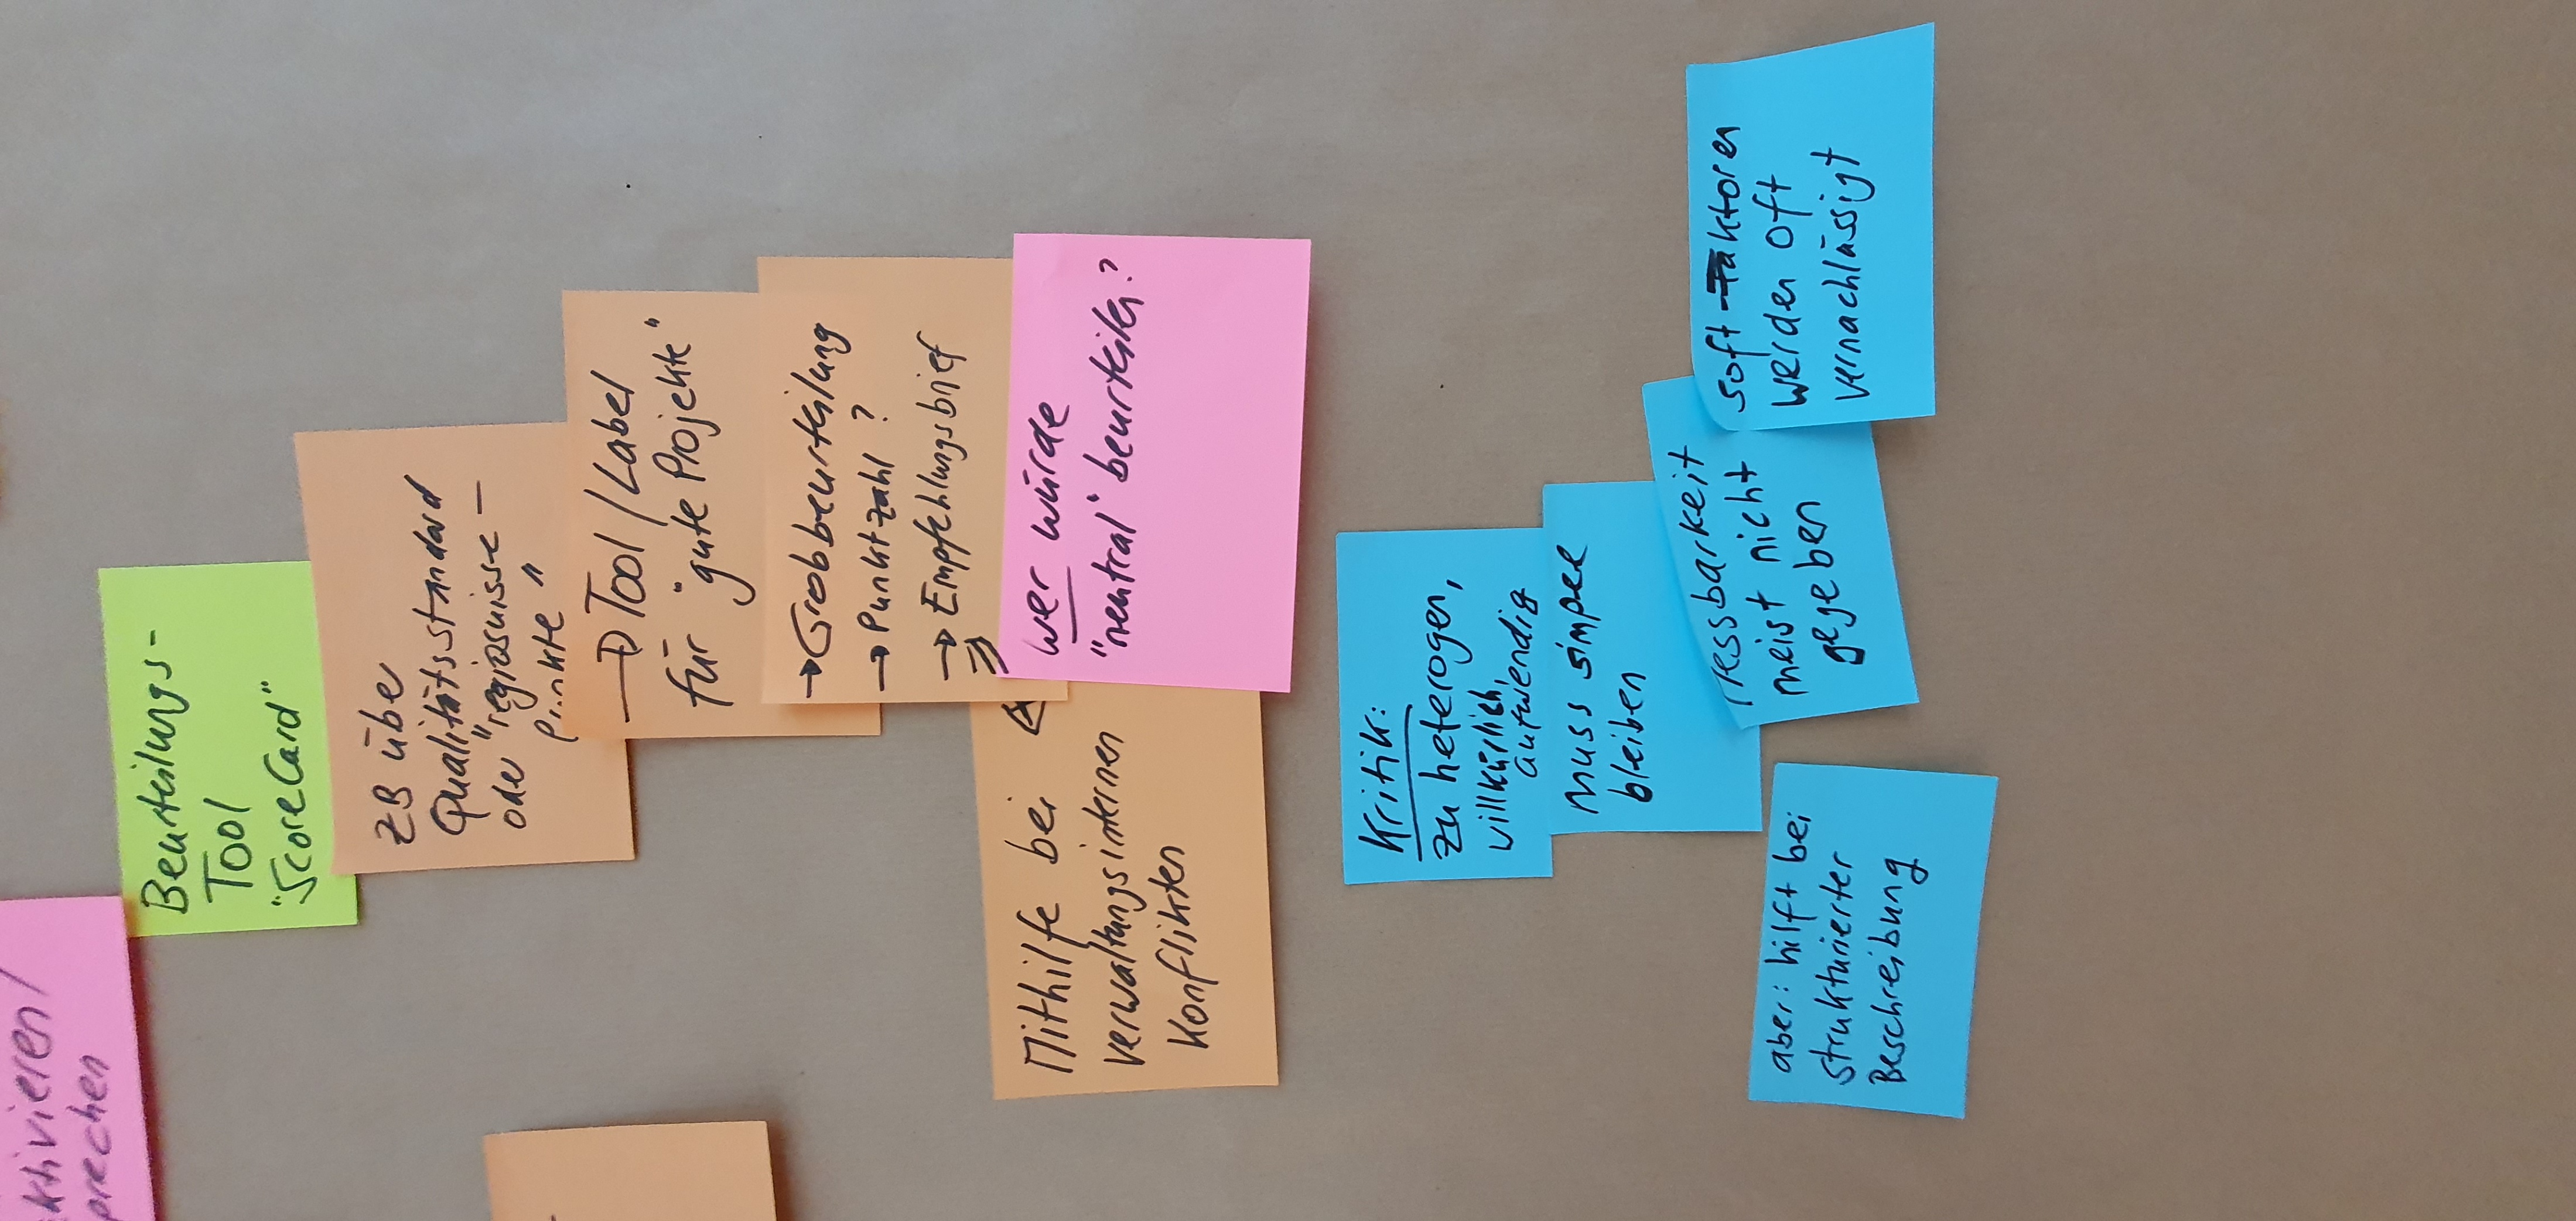 Beurteilungs-
Tool
"ScoreCard"
ZB über
Qualitätsstandard
oder
Tool/Label
für "gute Projekte"
→ Grobbeurteilung
→ Punktzahl?
→ Empfehlungsbrief
wer würde
"neutral" beurteilen?
Mithilfe bei
verwaltungsinternen
Konflikten
Kritik:
zu heterogen,
willkürlich,
aufwendig
muss simpel
bleiben
messbarkeit
meist nicht
gegeben
soft-Faktoren
werden oft
vernachlässigt
aber: hilft bei
strukturierter
Beschreibung